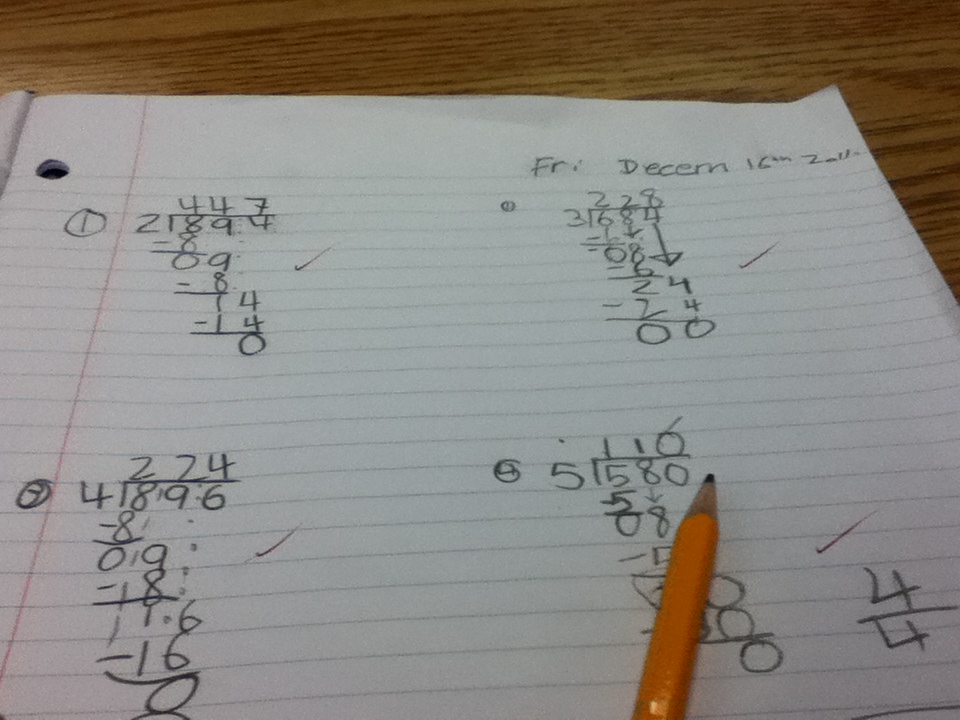 Fri: Decem 16th 2011
① 447
2)894
-8
09
-8
14
-14
0
228
3)684
08
-6
24
-24
00
② 224
4)896
-8
09
-18
11.6
-16
0
④ 116
5)580
5
08
0
4
4